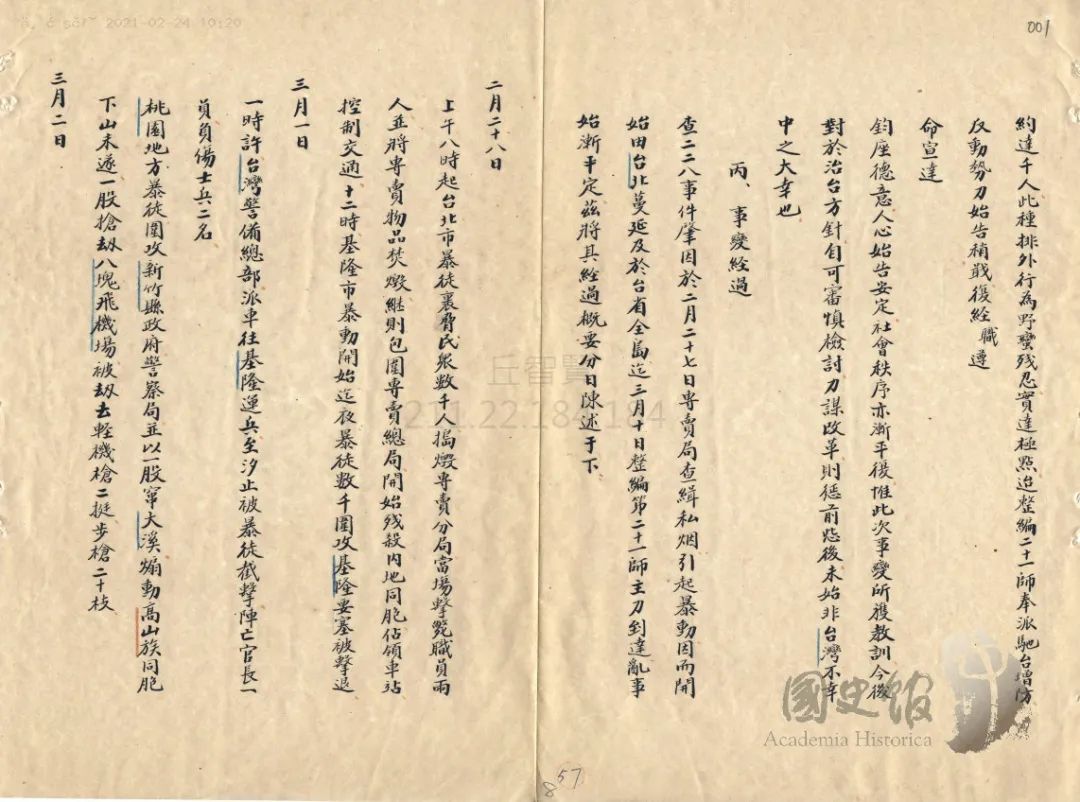 001
約達千人此種排外行為野蠻殘忍實達極點迨整編二十一師奉派馳台增防
反動勢力始告稍戢復經職遵
命宣達
鈞座德意人心始告安定社會秩序亦漸平復惟此次事變所獲教訓今後
對於治台方針自可審慎檢討力謀改革則懲前毖後未始非台灣不幸
中之大幸也
丙、事變經過
查二二八事件肇因於二月二十七日專賣局查緝私烟引起暴動因而開
始由台北蔓延及於台省全島迄三月十日整編第二十一師主力到達亂事
始漸平定茲將其經過概要分日陳述于下
二月二十八日
上午八時起台北市暴徒裹脅民眾數千人搗燬專賣分局當場擊斃職員兩
人並將專賣物品焚燬繼則包圍專賣總局開始殘殺內地同胞佔領車站
控制交通十二時基隆市暴動開始迄夜暴徒數千圍攻基隆要塞被擊退
三月一日
一時許台灣警備總部派車往基隆運兵至汐止被暴徒截擊陣亡官長一
員負傷士兵二名
桃園地方暴徒圍攻新竹縣政府警察局並以一股竄大溪煽動高山族同胞
下山未遂一股搶劫八塊飛機場被劫去輕機槍二挺步槍二十枝
三月二日
57
8
2021-02-24 10:20
丘智賢
211.22.184.184
國史館
Academia Historica